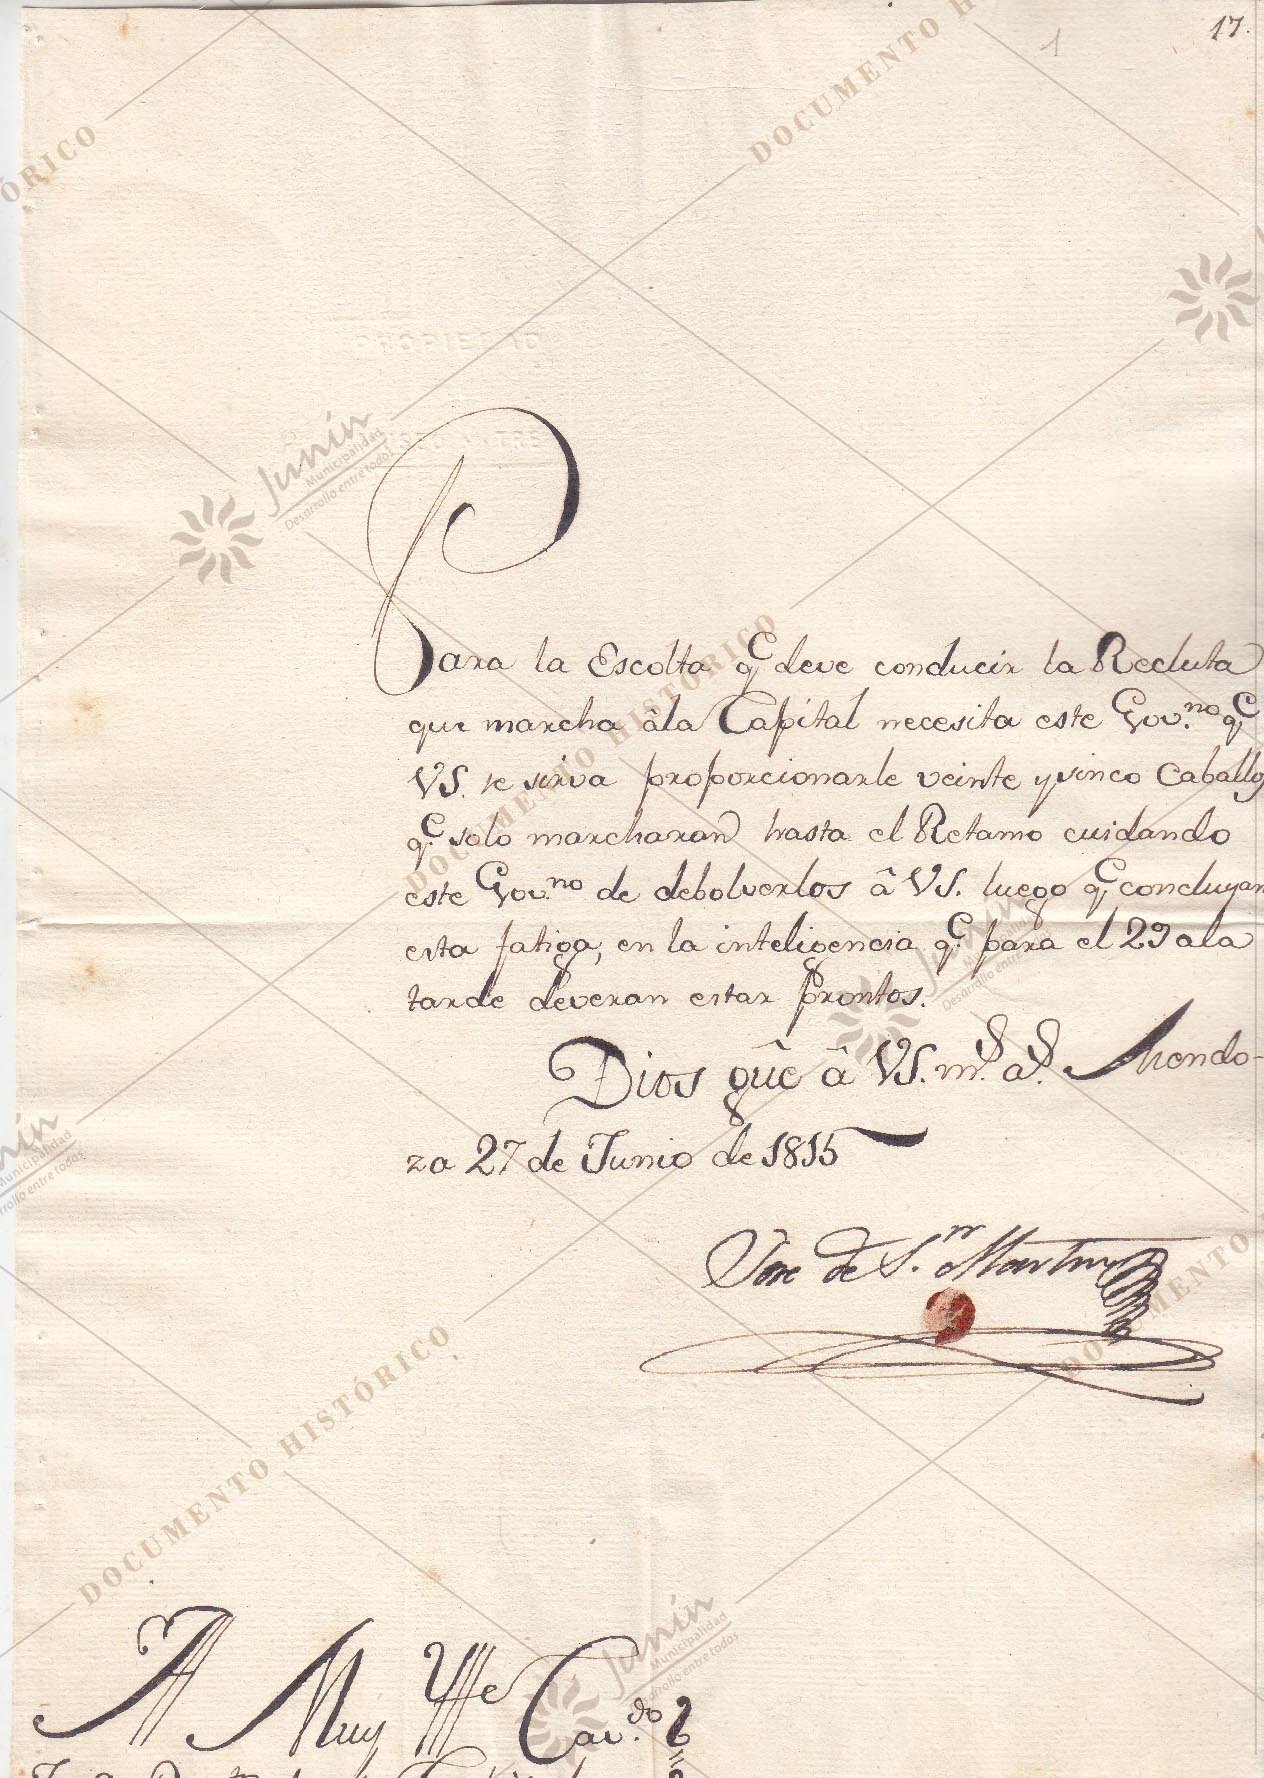 17.
1
Para la Escolta q.e deve conducir la Recluta
que marcha âla Capital necesita este Gov.no q.e
VS. se sirva proporcionarle veinte y sinco Caballos
q.e solo marcharan hasta el Retamo cuidando
este Gov.no de debolverlos â VS. luego q.e concluyan
esta fatiga, en la inteligencia q.e para el 29 ala
tarde deveran estar prontos.
Dios gûe â VS. m.s a.s Mendo-
za 27 de Junio de 1815
Jose de S.n Martin
Muy Ylle Cav.do
DOCUMENTO HISTÓRICO
Junín
Municipalidad
Desarrollo entre todos